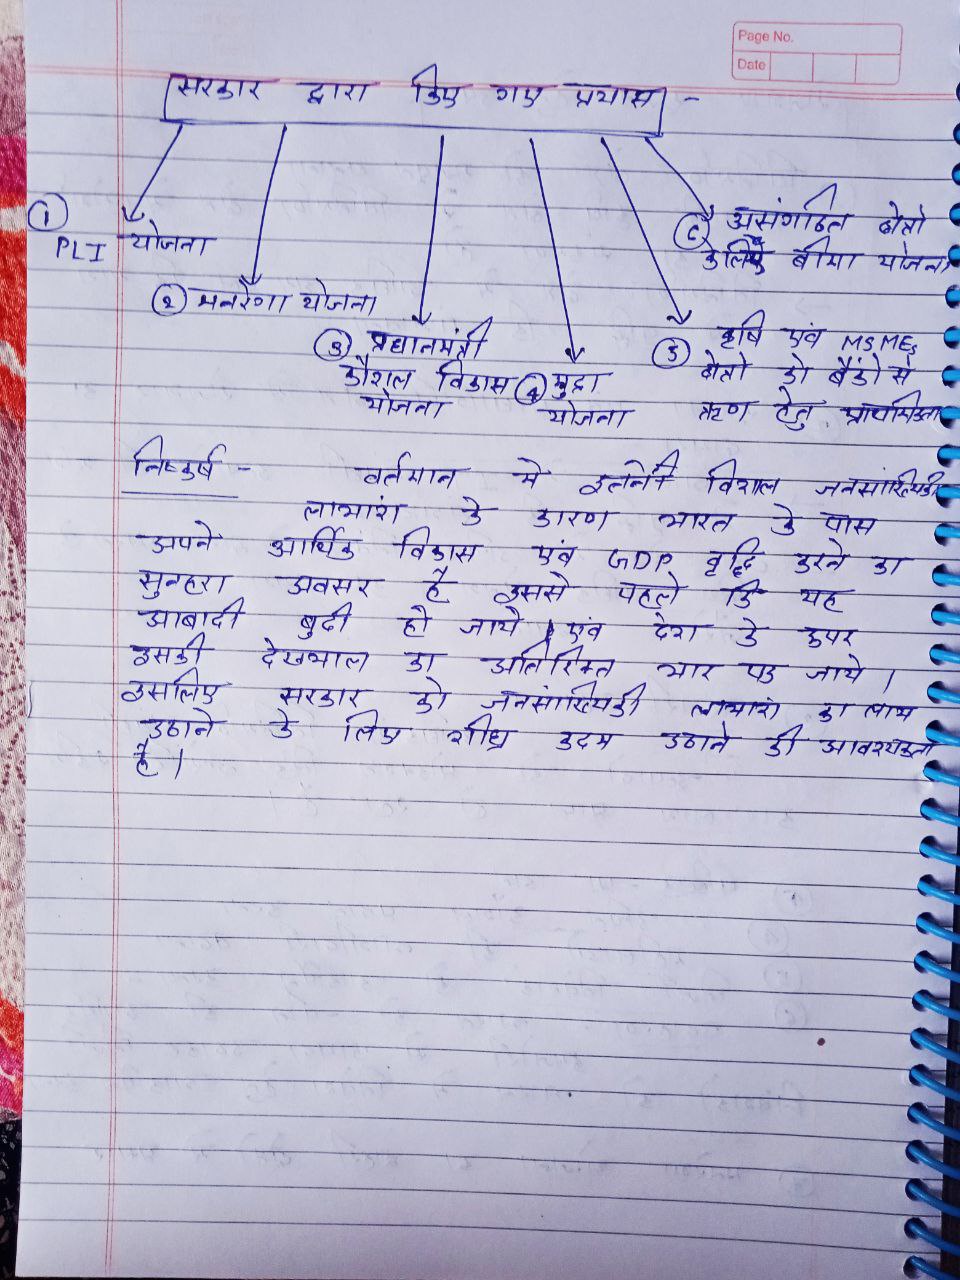 Page No.
Date
सरकार द्वारा किए गए प्रयास -
① PLI योजना
② मनरेगा योजना
③ प्रधानमंत्री
कौशल विकास
योजना
④ मुद्रा
योजना
⑤ कृषि एवं MSMEs
क्षेत्रो को बैंको से
ऋण हेतु प्राथमिकता
⑥ असंगठित क्षेत्रो
के लिए बीमा योजना
निष्कर्ष - वर्तमान मे इतनी विशाल जनसांख्यिकी
लाभांश के कारण भारत के पास
अपने आर्थिक विकास एवं GDP वृद्धि करने का
सुनहरा अवसर है इससे पहले कि यह
आबादी बुढी हो जाये एवं देश के उपर
इसकी देखभाल का अतिरिक्त भार पड जाये।
इसलिए सरकार को जनसांख्यिकी लाभांश का लाभ
उठाने के लिए शीघ्र कदम उठाने की आवश्यकता
है।